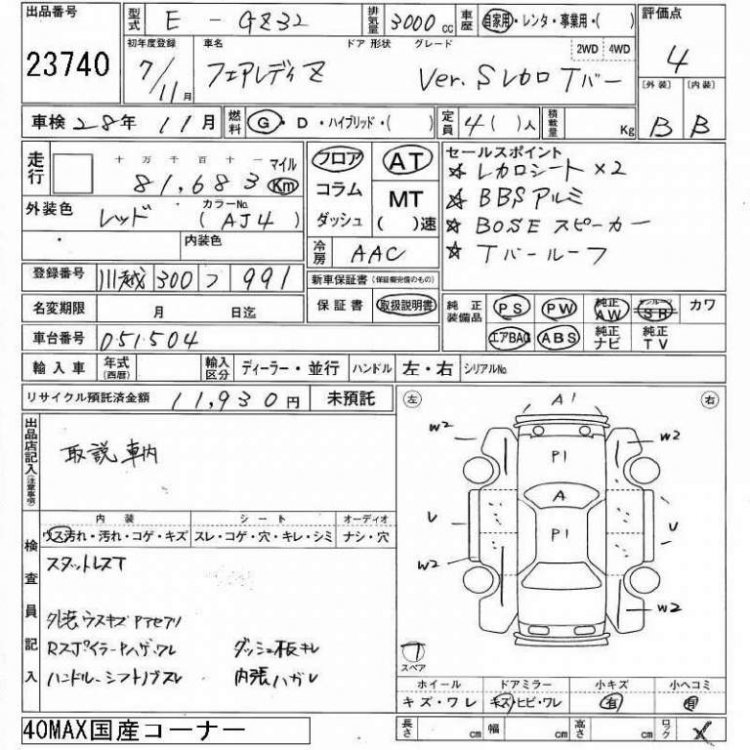 出品番号 型式 E - GZ32 排気量 3000 cc 車歴 自家用・レンタ・事業用・( ) 評価点
23740 4
初年度登録 車名 ドア 形状 グレード 2WD 4WD
7/11月 フェアレディZ Ver.Sレカロ Tバー
〔外装〕 〔内装〕
車検 28年 11月 燃料 G・D・ハイブリッド・( ) 定員 4( )人 積載量 Kg B B
走行 十万千百十一 マイル
81,683 Km
フロア AT
コラム MT
ダッシュ ( )速
セールスポイント
☆ レカロシート×2
☆ BBSアルミ
☆ BOSEスピーカー
☆ Tバールーフ
外装色 レッド カラーNo. (AJ4)
内装色
冷房 AAC
登録番号 川越 300 つ 991
新車保証書(保証欄完備のもの)
名変期限 月 日迄
保証書 取扱説明書
純正装備品 PS PW 純正AW SR カワ
エアBAG ABS 純正ナビ 純正TV
車台番号 051504
輸入車 年式(西暦) 輸入区分 ディーラー・並行 ハンドル 左・右 シリアルNo.
リサイクル預託済金額 11,930円 未預託
出品店記入(注意事項)
取説車内
左 右
A1
W2 W2
P1
A
U U
P1
W2 W2
検査員記入
内装 シート オーディオ
ウス汚れ・汚れ・コゲ・キズ スレ・コゲ・穴・キレ・シミ ナシ・穴
スタットレスT
外装ウスキズPアセアリ
RスポイラーPハゲ、ワレ ダッシュ板キレ
ハンドル、シフトノブスレ 内張ハガレ
スペア
ホイール ドアミラー 小キズ 小ヘコミ
キズ・ワレ キズ・ヒビ・ワレ 有 有
40MAX国産コーナー
長さ cm 幅 cm 高さ cm ロック